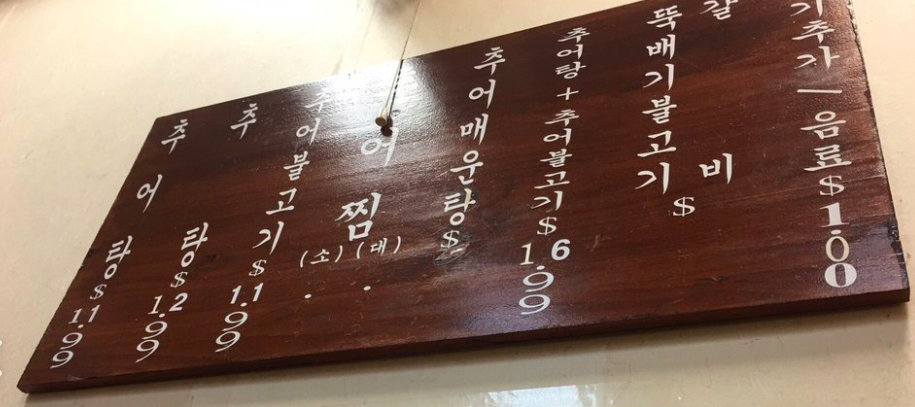 추어탕 $11.99
추탕 $12.99
추어불고기 $11.99
어찜 (소) (대)
추어매운탕 $
추어탕+추어불고기 $16.99
뚝배기불고기 $
갈비
기추가 — 음료 $1.00